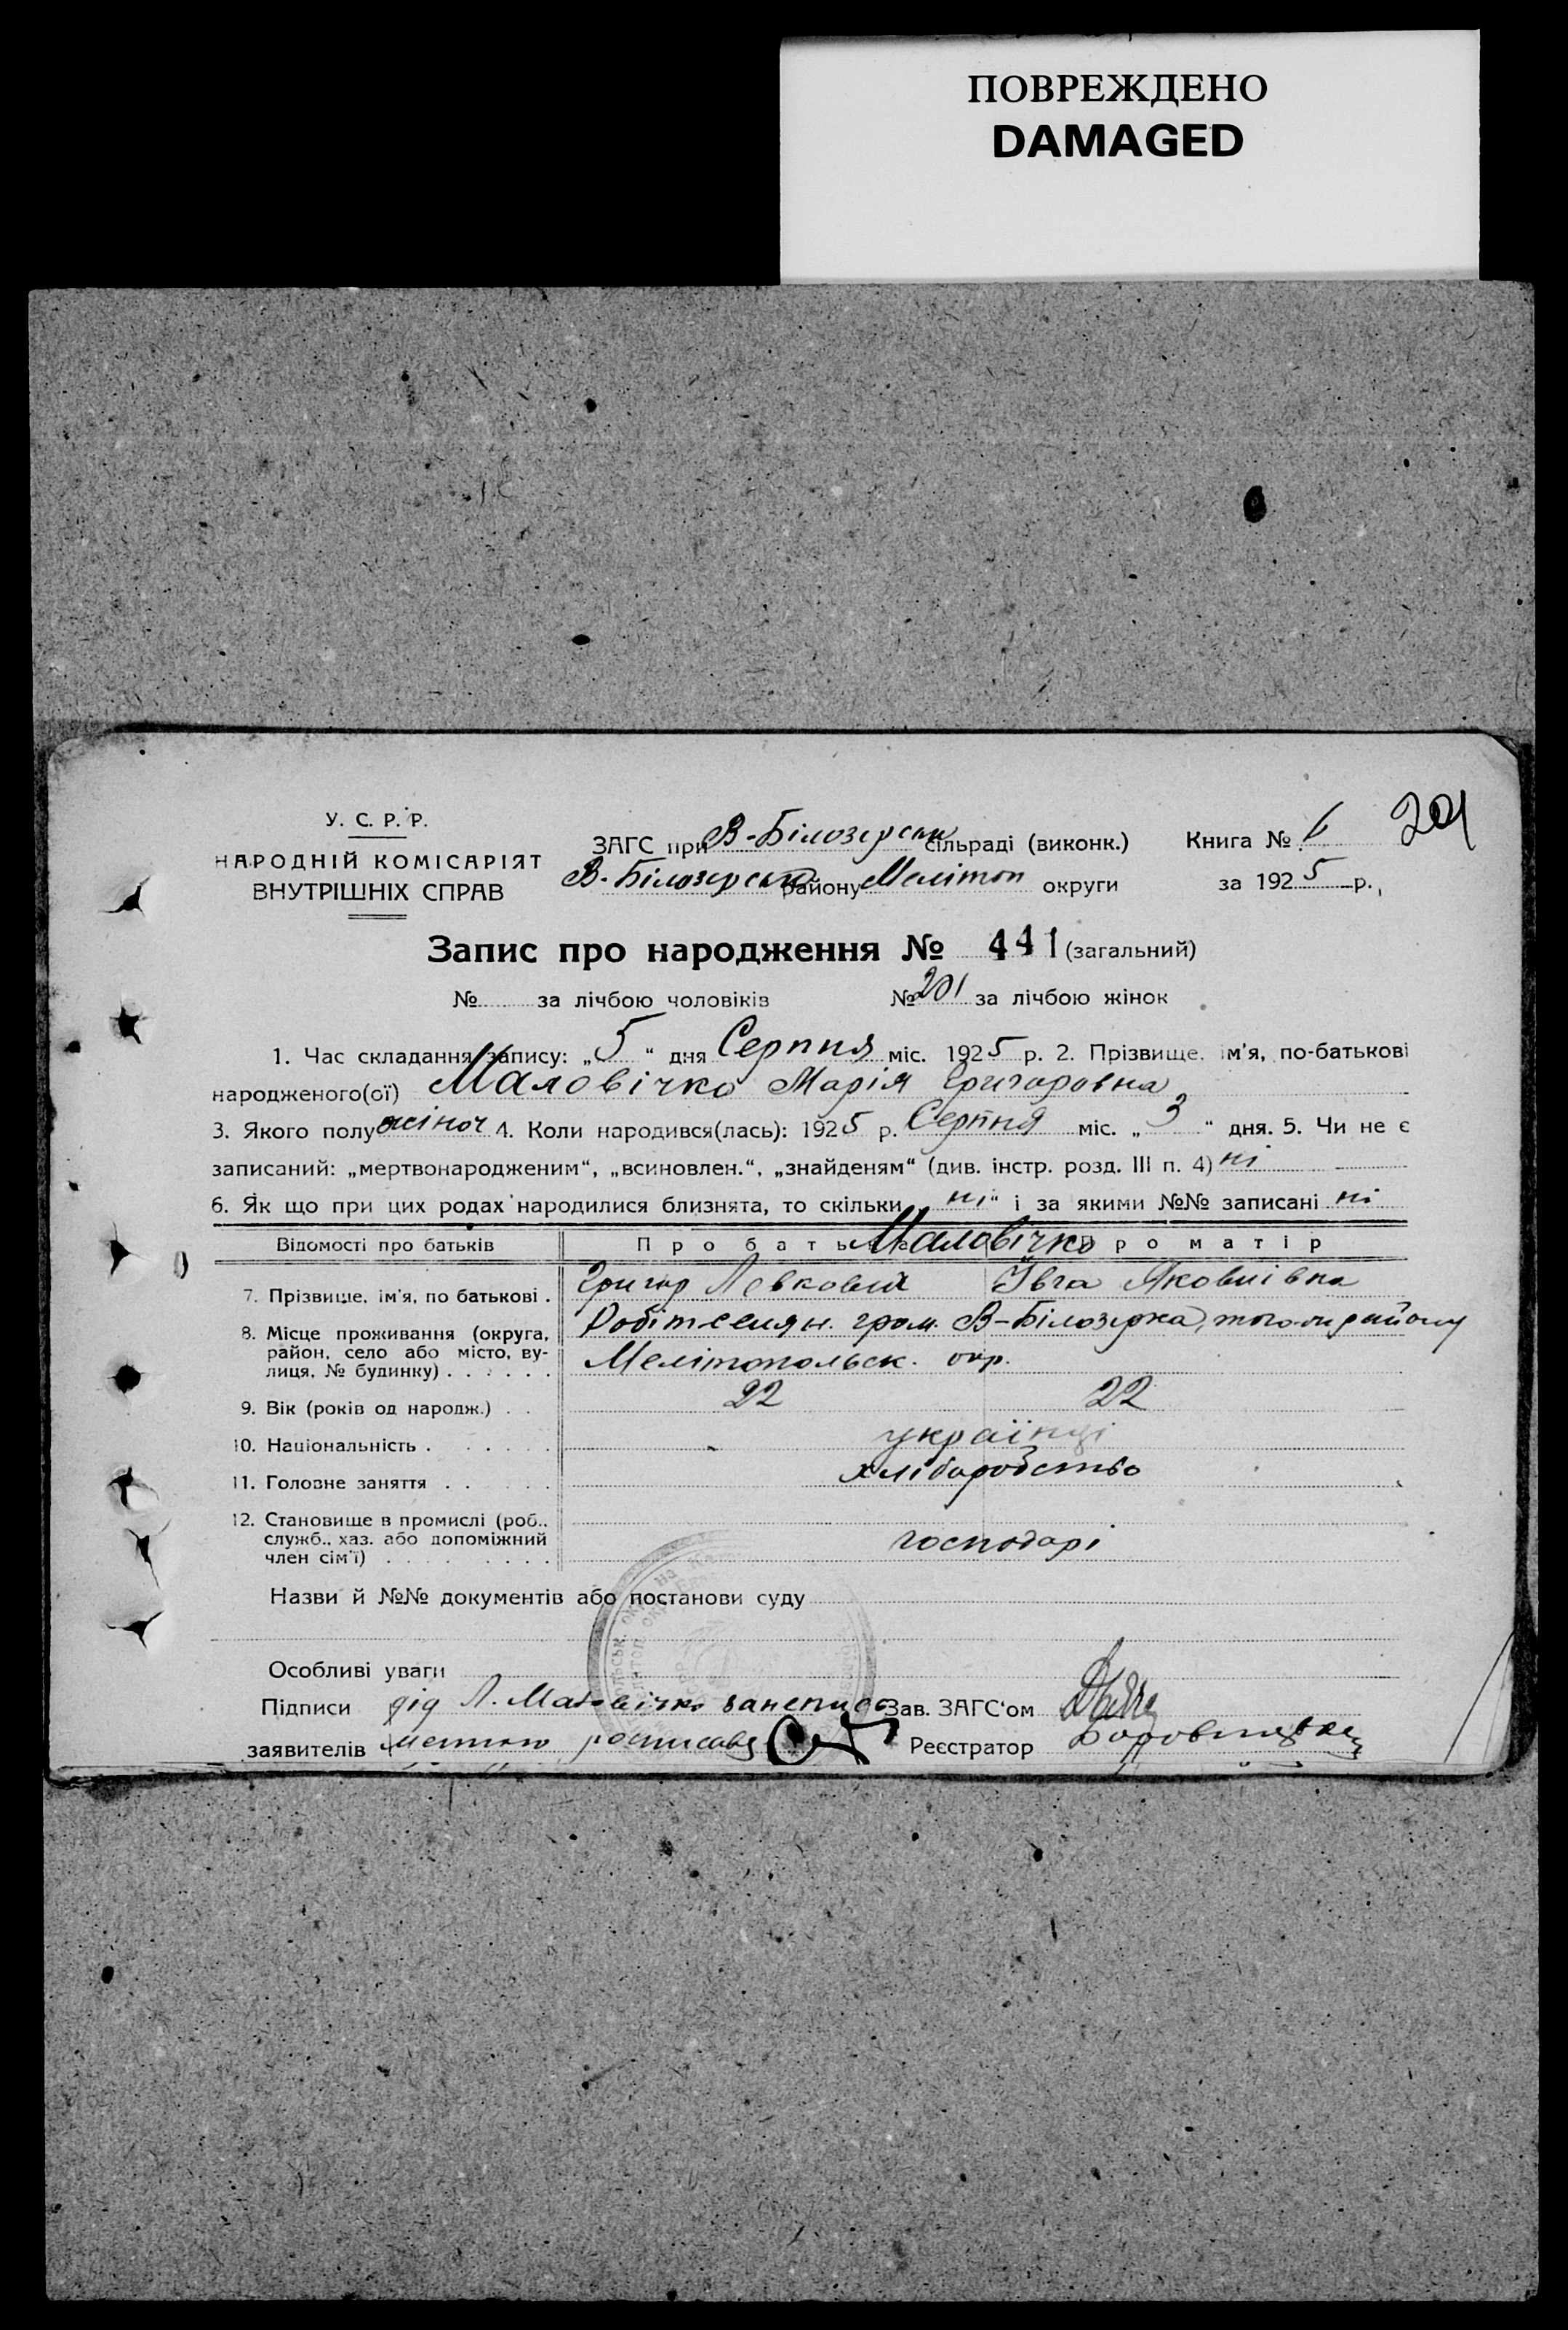 ПОВРЕЖДЕНО
DAMAGED
У. С. Р. Р.
НАРОДНІЙ КОМІСАРІЯТ
ВНУТРІШНІХ СПРАВ
ЗАГС при В-Білозерськ сільраді (виконк.)
В. Білозерськ району Мелітоп округи
Книга № 6
201
за 1925 р.
Запис про народження № 441 (загальний)
№ за лічбою чоловіків № 201 за лічбою жінок
1. Час складання запису: „5“ дня Серпня міс. 1925 р. 2. Прізвище, ім'я, по-батькові
народженого(ої) Маловічко Марія Григоровна
3. Якого полу жіноч 4. Коли народився(лась): 1925 р. Серпня міс. „3“ дня. 5. Чи не є
записаний: „мертвонародженим“, „всиновлен.“, „знайденям“ (див. інстр. розд. III п. 4) ні
6. Як що при цих родах народилися близнята, то скільки „ні“ і за якими №№ записані ні
Відомості про батьків Про батька Маловічко Про матір
7. Прізвище, ім'я, по батькові . Григор Левковий Ївга Яковлівна
8. Місце проживання (округа, Робітселян. гром. В-Білозірка, того-ж району
район, село або місто, ву-
лиця, № будинку) . . . . . . Мелітопольськ. окр.
9. Вік (років од народж.) . . 22 22
10. Національність . . . . . . українці
11. Головне заняття . . . . . хліборобство
12. Становище в промислі (роб.,
служб., хаз. або допоміжний господарі
член сім'ї) . . . . . . . . .
Назви й №№ документів або постанови суду
Особливі уваги
Підписи дід Л. Маловічко Зав. ЗАГС'ом
заявителів Реєстратор